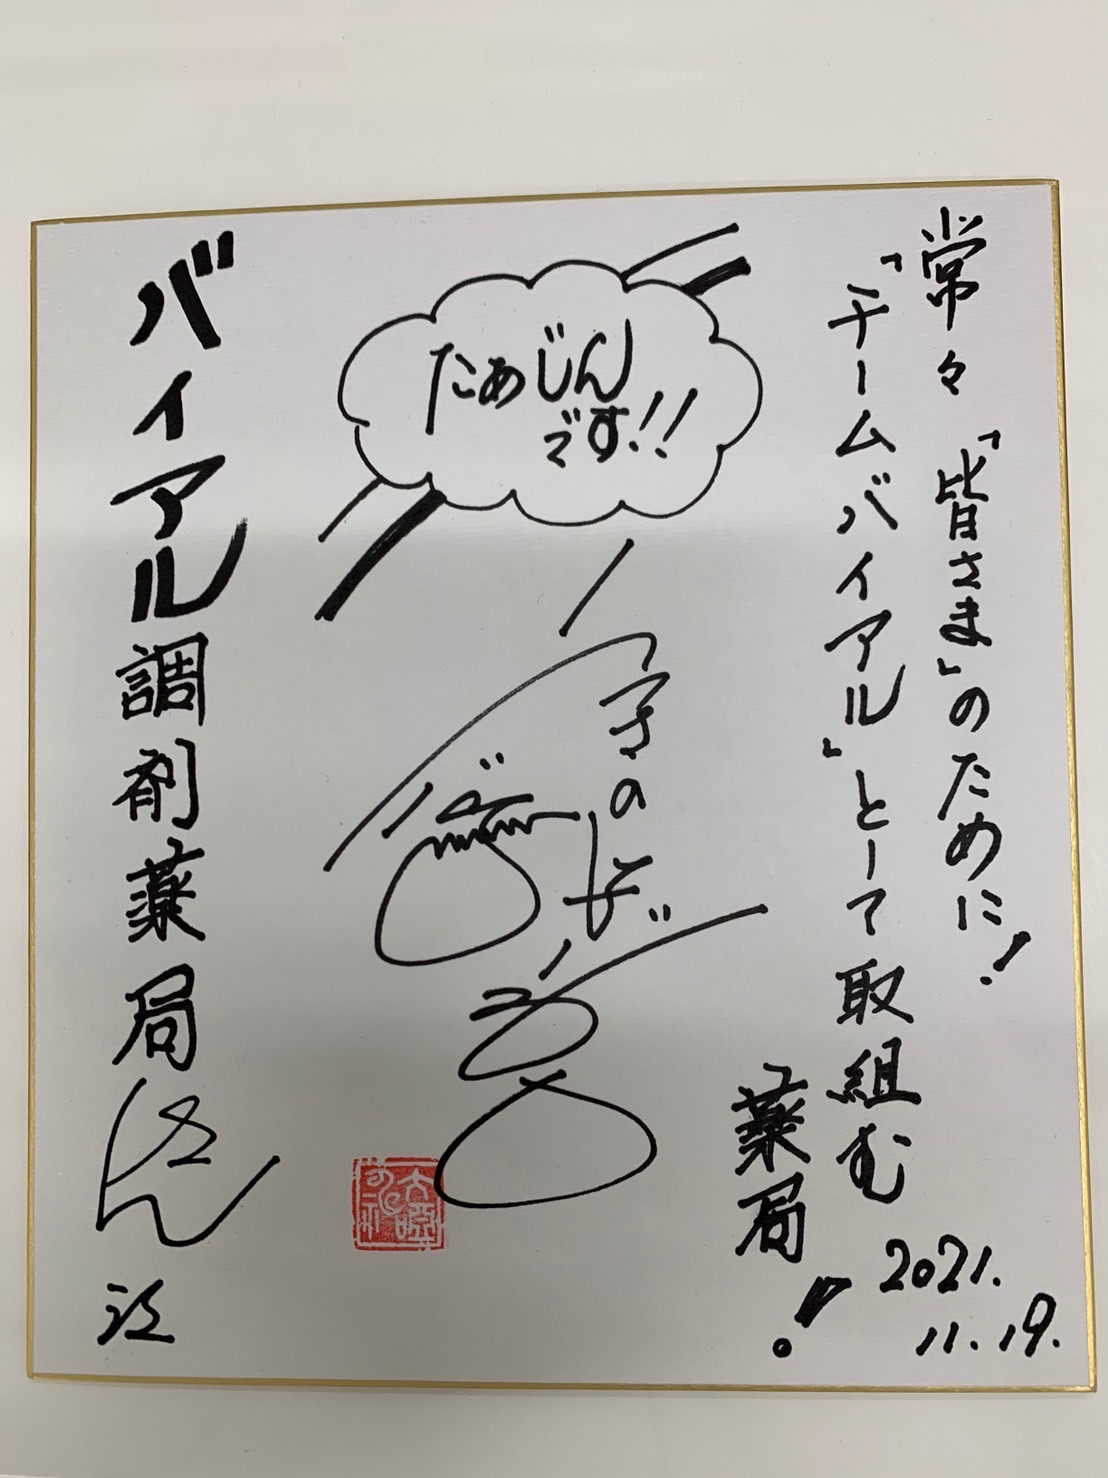 常々「皆さま」のために!
「チームバイアル」として取組む
薬局!
2021.
11.19.
たぁじん
です!!
バイアル調剤薬局さん江